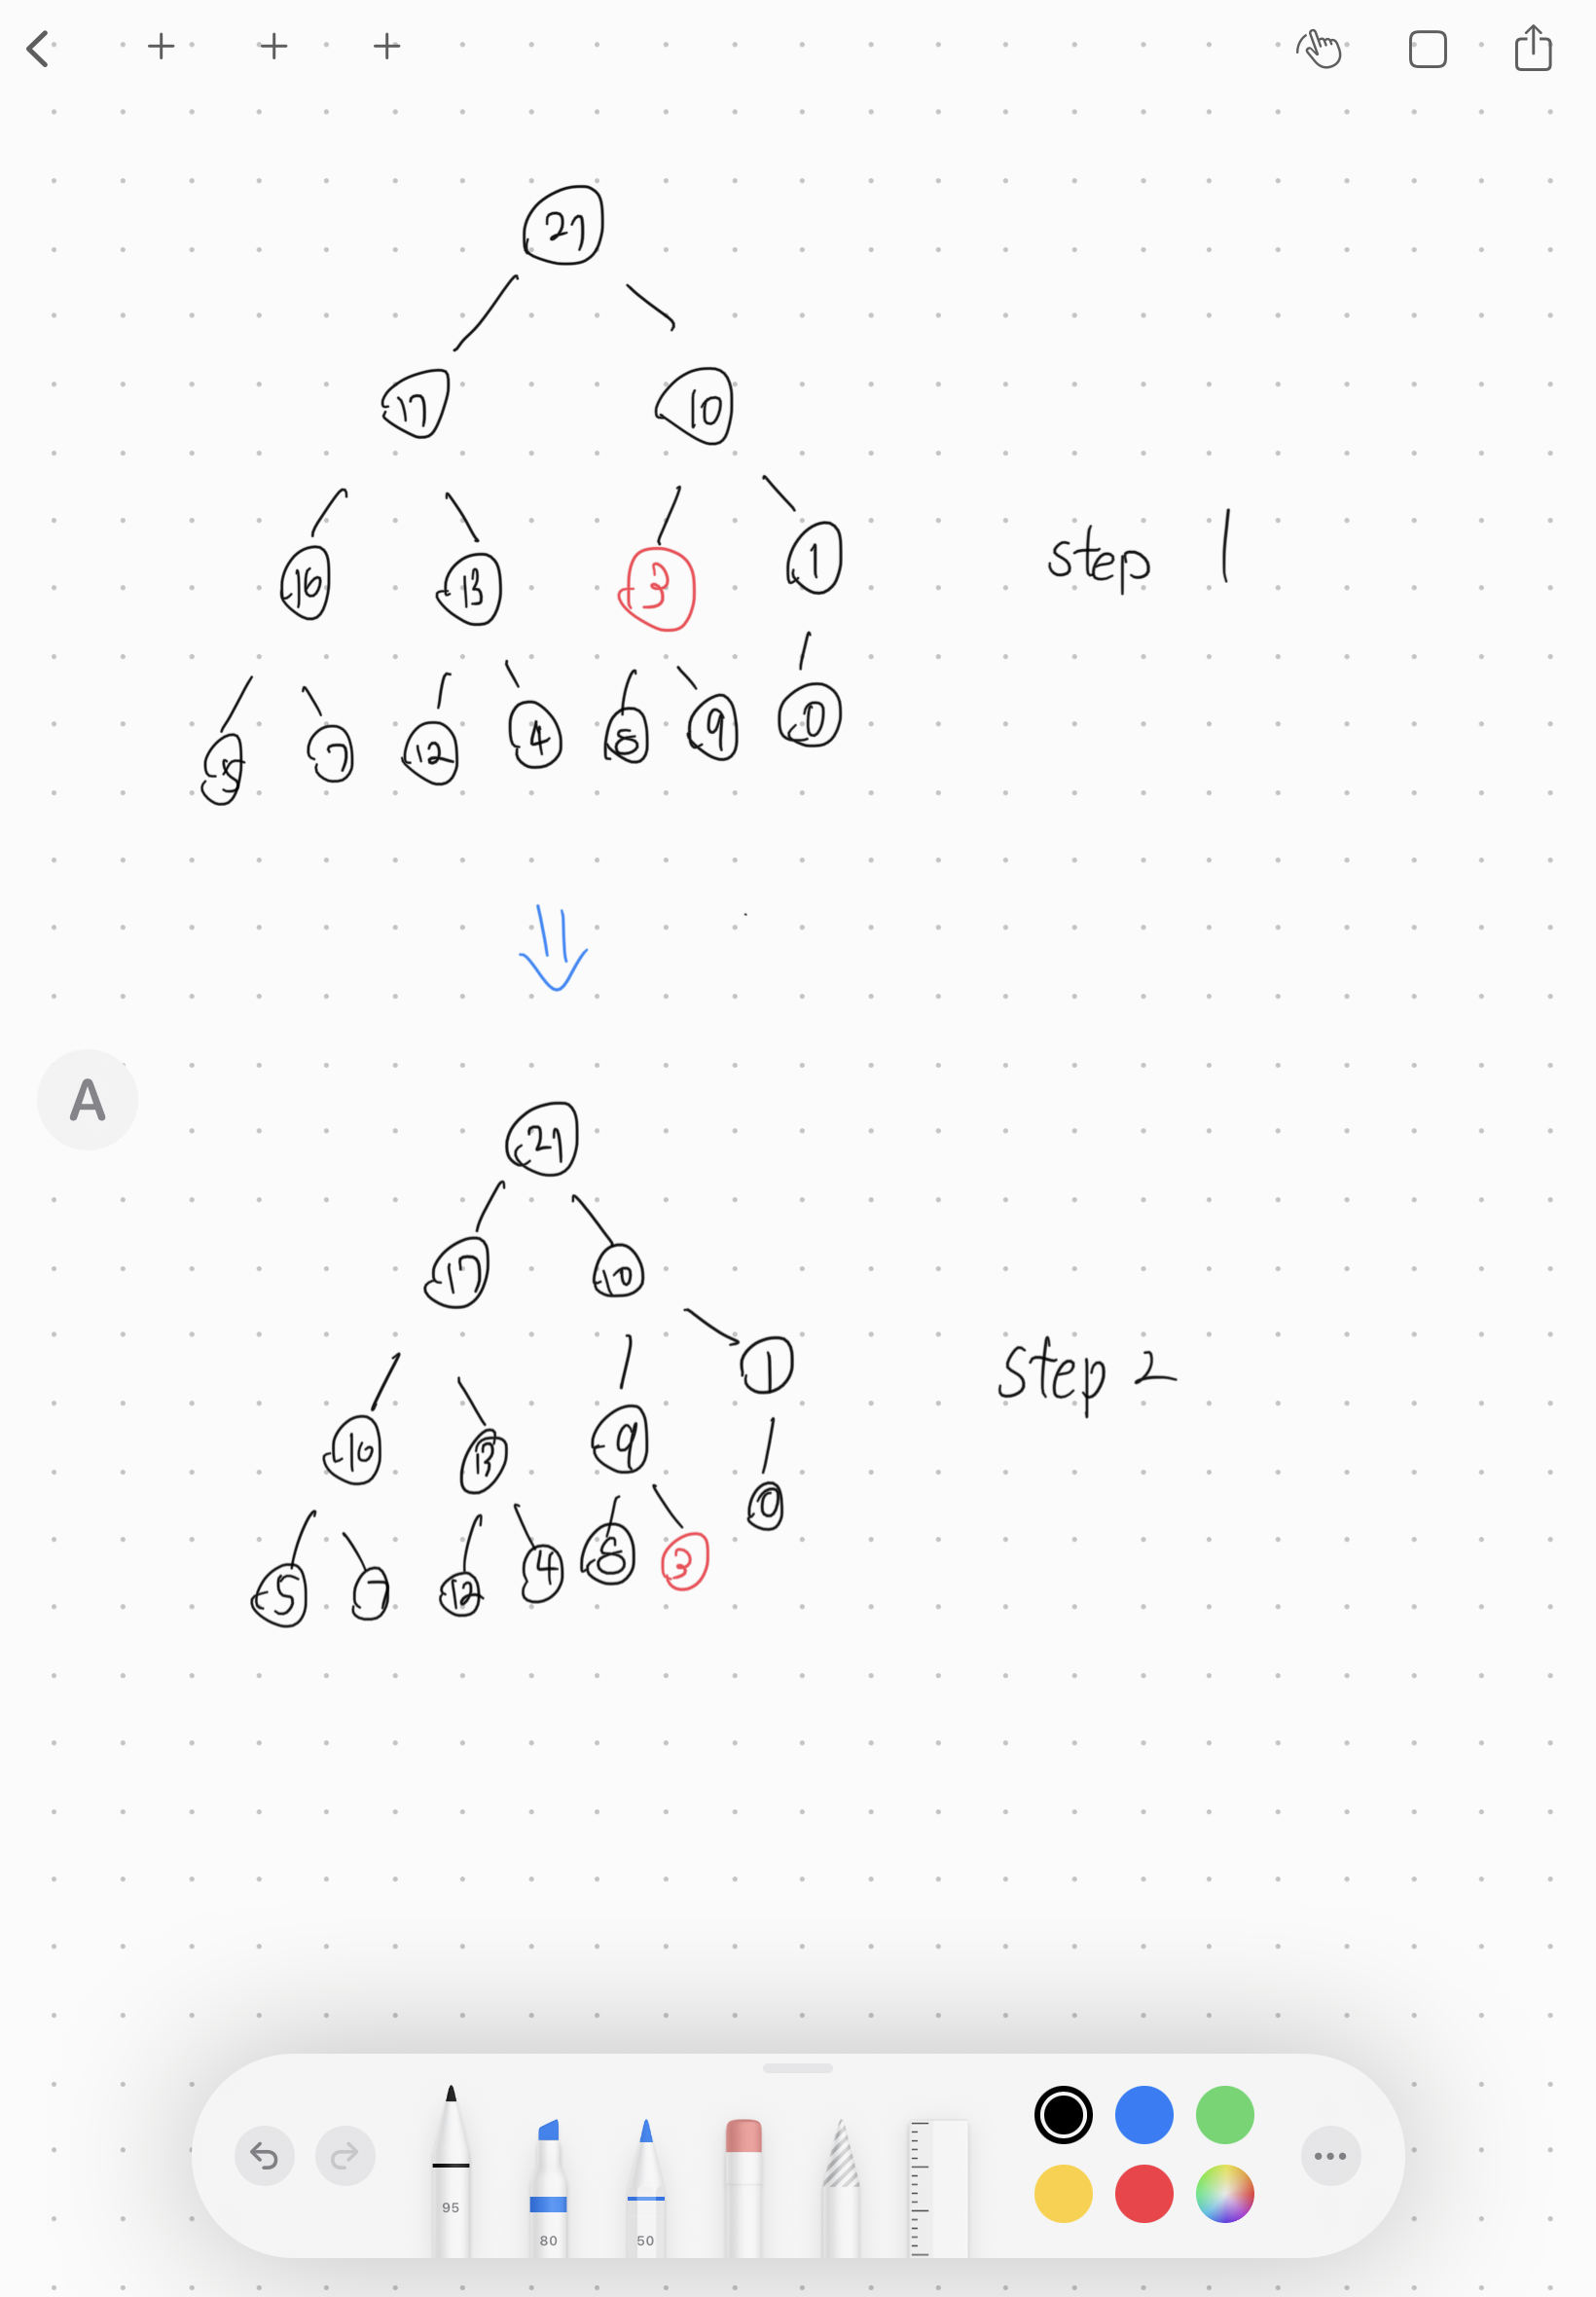 27
17 10
16 13 3 1
5 7 12 4 8 9 0
step 1
A
27
17 10
16 13 9 1
5 7 12 4 8 3 0
step 2
95 80 50